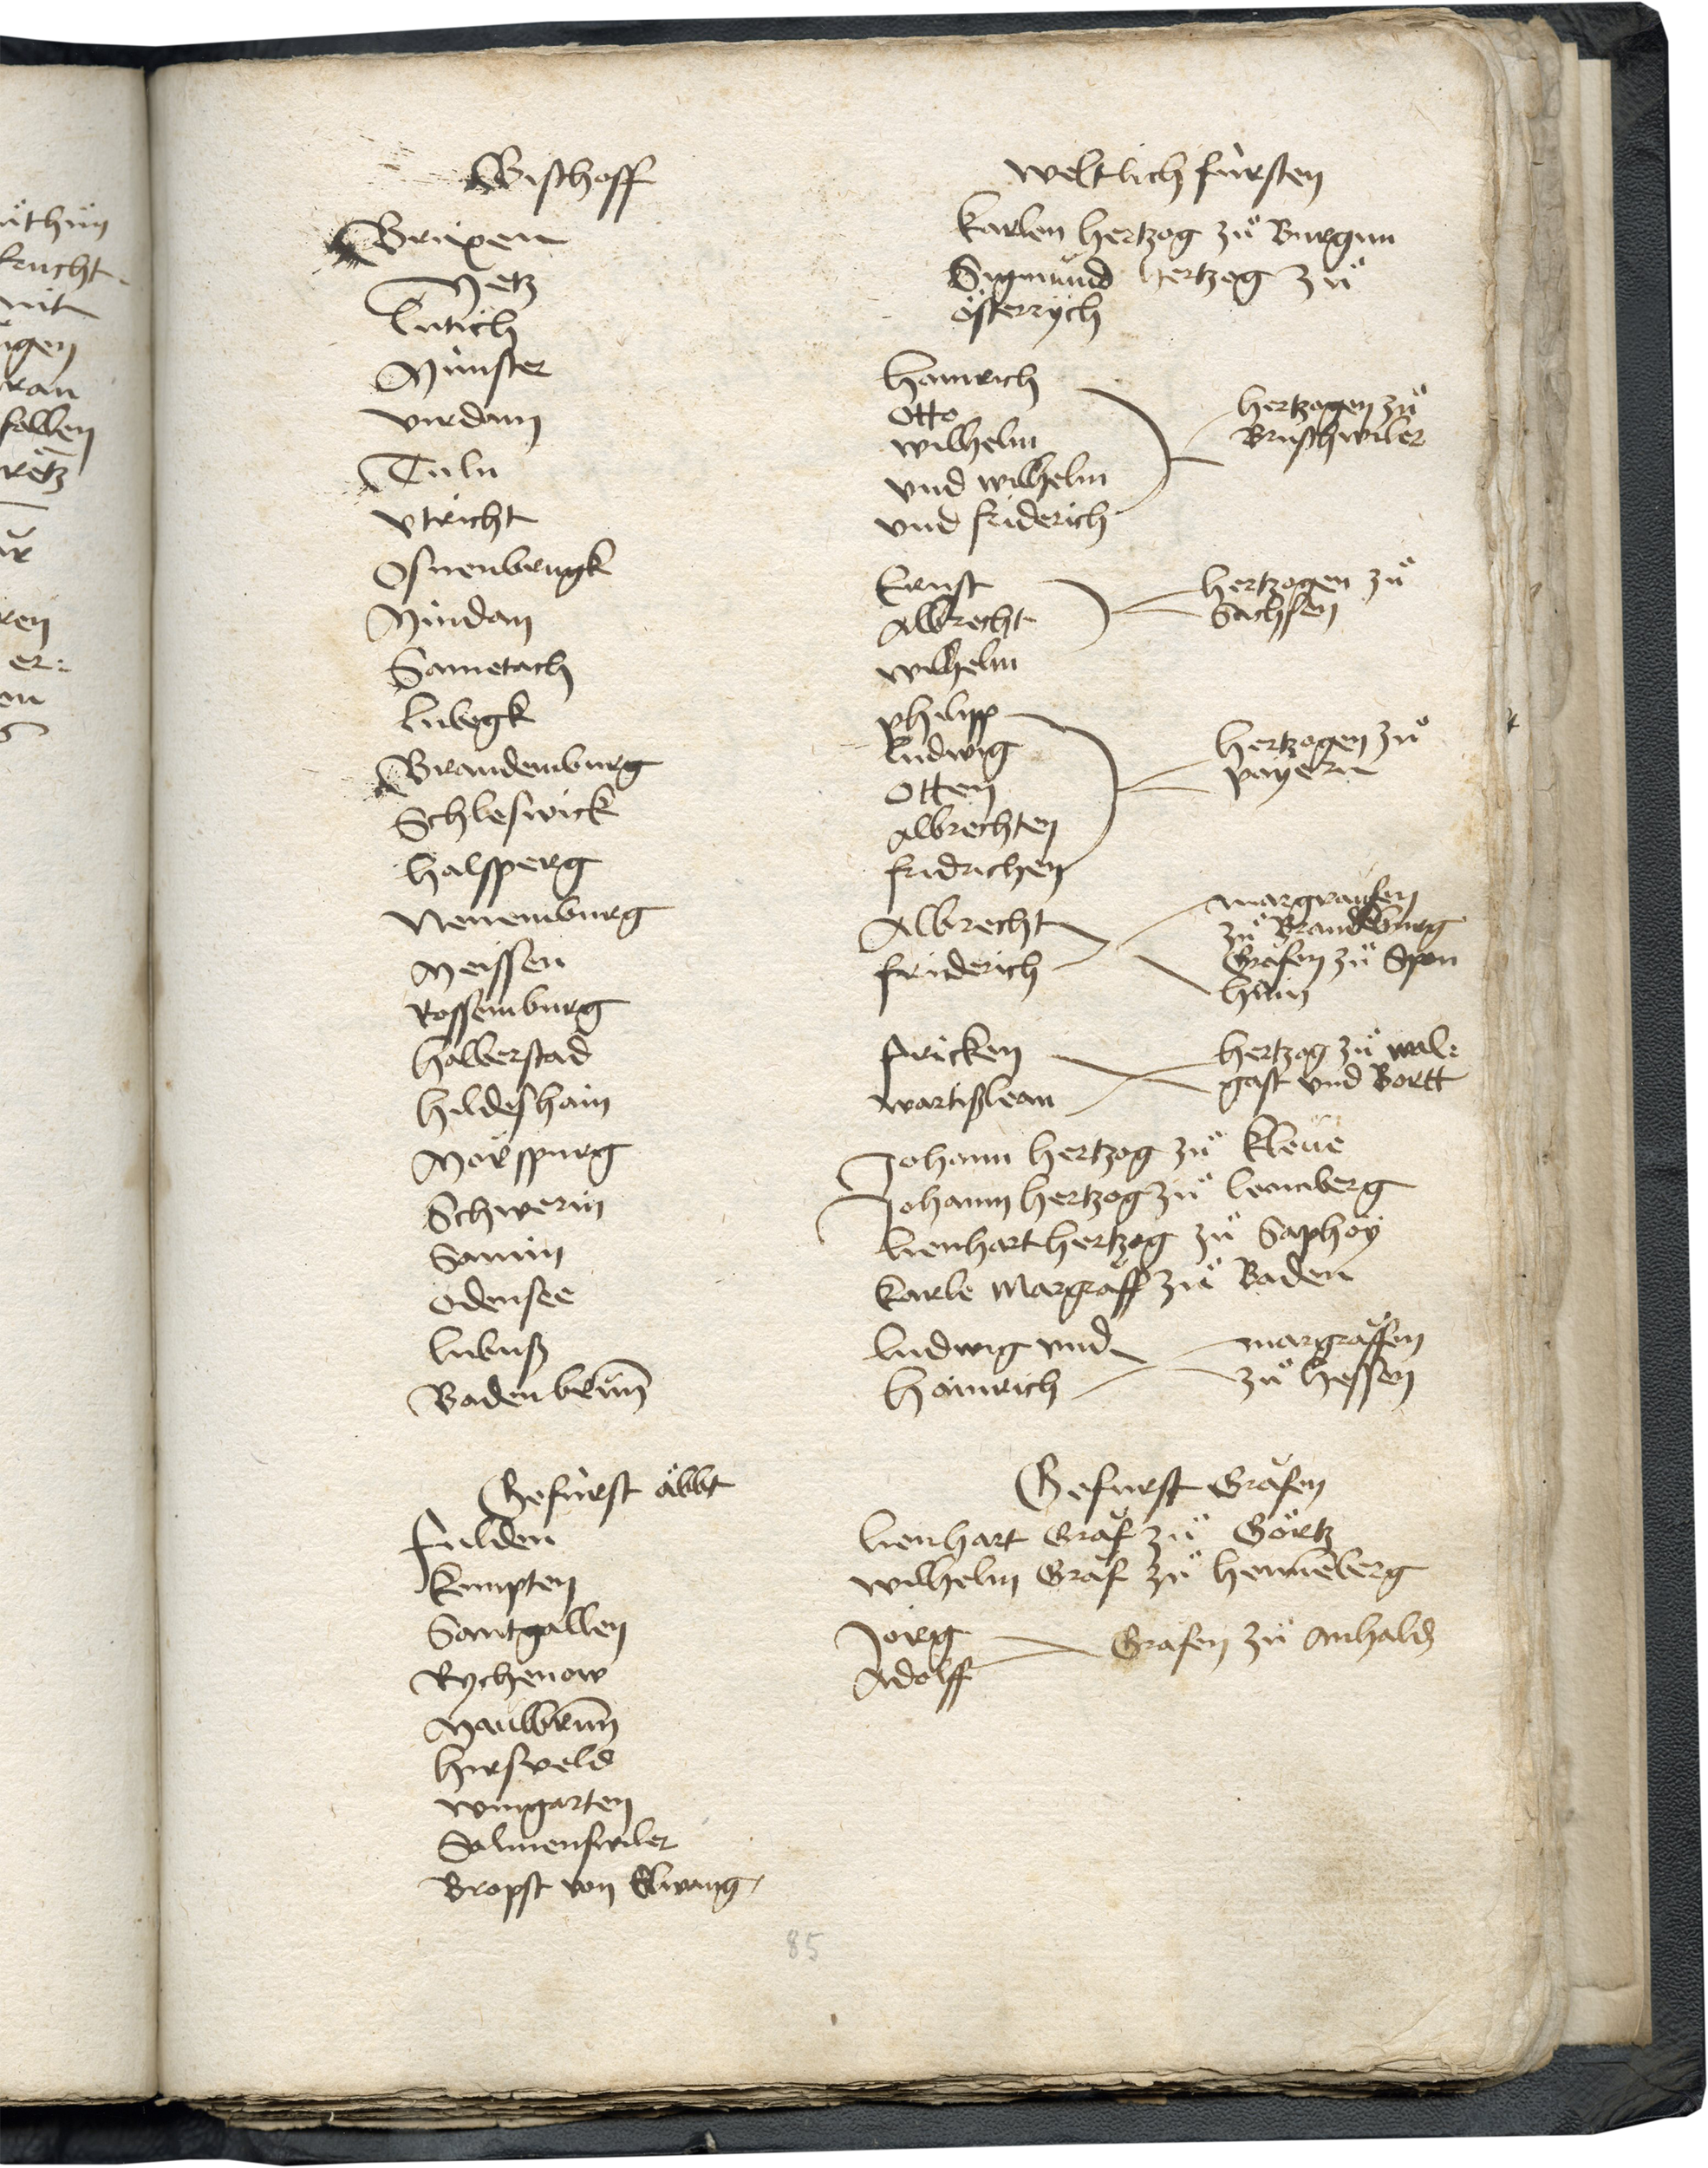 Bischoff
Brixen
Metz
Lutich
Munster
virdam
Tuln
vtricht
Osnenbrugk
Mindan
Sametach
Lubegk
Brandemburg
Schleswick
halsperg
Neuemburg
Meissen
Rossemburg
halberstad
hildeshaim
Mörspurg
Schwerin
Samin
Odensee
Lubuß
Badenbrun̄
Gefurst äbbt
fulden
kempten
Santgallen
Rychenow
Maulbrun̄
hirsveld
wingarten
Salmenswiler
Bropst von Elwang
weltlich fursten
karlen hertzog zů Burgun
Sigmund hertzog zů
österrych
hainrich
Otto
wilhelm
vnd wilhelm
vnd friderich
hertzogen zů
Brunschwiler
Ernst
Albrecht
wilhelm
hertzogen zů
Sachsen
philipp
Ludwig
Otten
Albrechten
fridrichen
hertzogen zů
payern
Albrecht
friderich
margrauffen
zů Brandeburg
Gräfen zů Spon
haim
fricken
wartißlean
hertzog zů wal:
gast vnd Bortt
Johann hertzog zů kleue
Johann hertzog zů Lemberg
Lienhart hertzog zů Saphoy
karle Margräff zů Baden
Ludwig vnd
hainrich
margräffen
zů hessen
Gefurst Gräfen
Lienhart Gräf zů Görtz
wilhelm Gräf zů hennēberg
Jörig
Adolff
Grafen zů Anhald
85